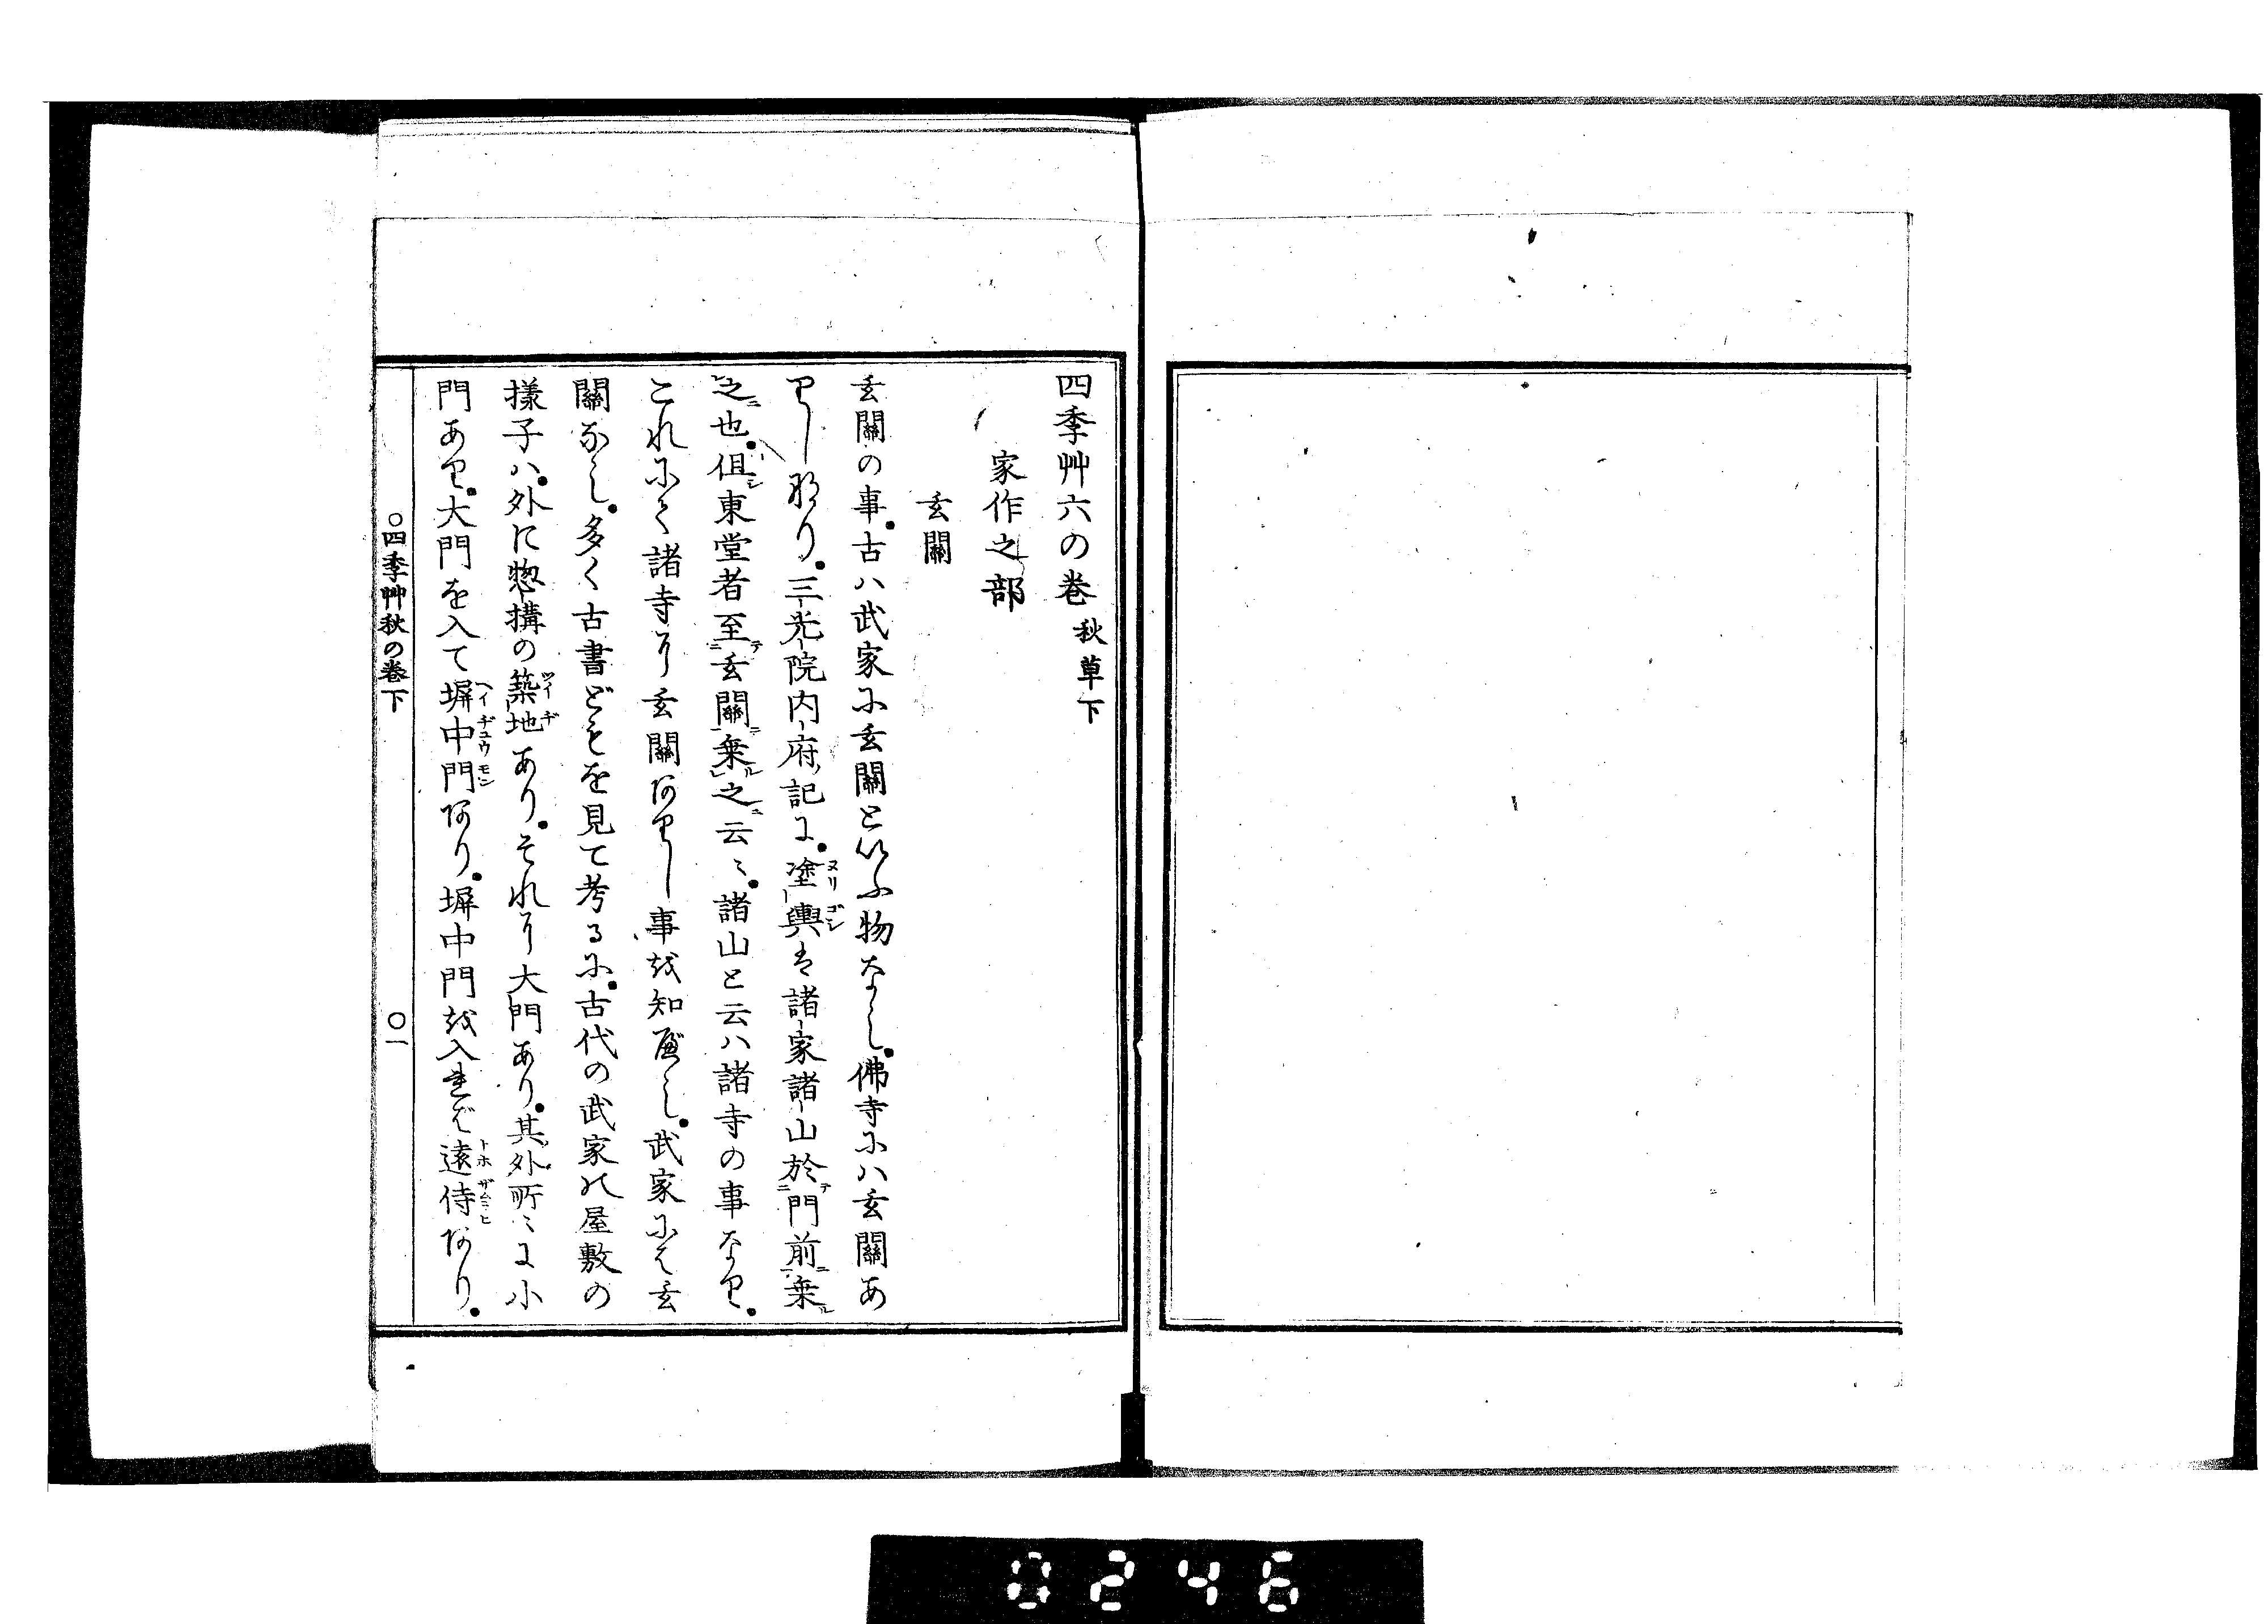 四季艸六の巻 秋草下
家作之部
玄關
玄關の事。古ハ武家に玄關といふ物なし。佛寺にハ玄關あ
りしなり。三光院内府記に。塗輿は諸家諸山於門前乗
之也。但東堂者至玄關乗之云々。諸山と云ハ諸寺の事なり。
これにて諸寺に玄關ありし事を知べし。武家には玄
關なし。多く古書どもを見て考るに。古代の武家の屋敷の
様子ハ。外に惣構の築地あり。それに大門あり。其外所々に小
門あり。大門を入て塀中門あり。塀中門を入れば遠侍あり。
○四季艸秋の巻下 ○一
0246